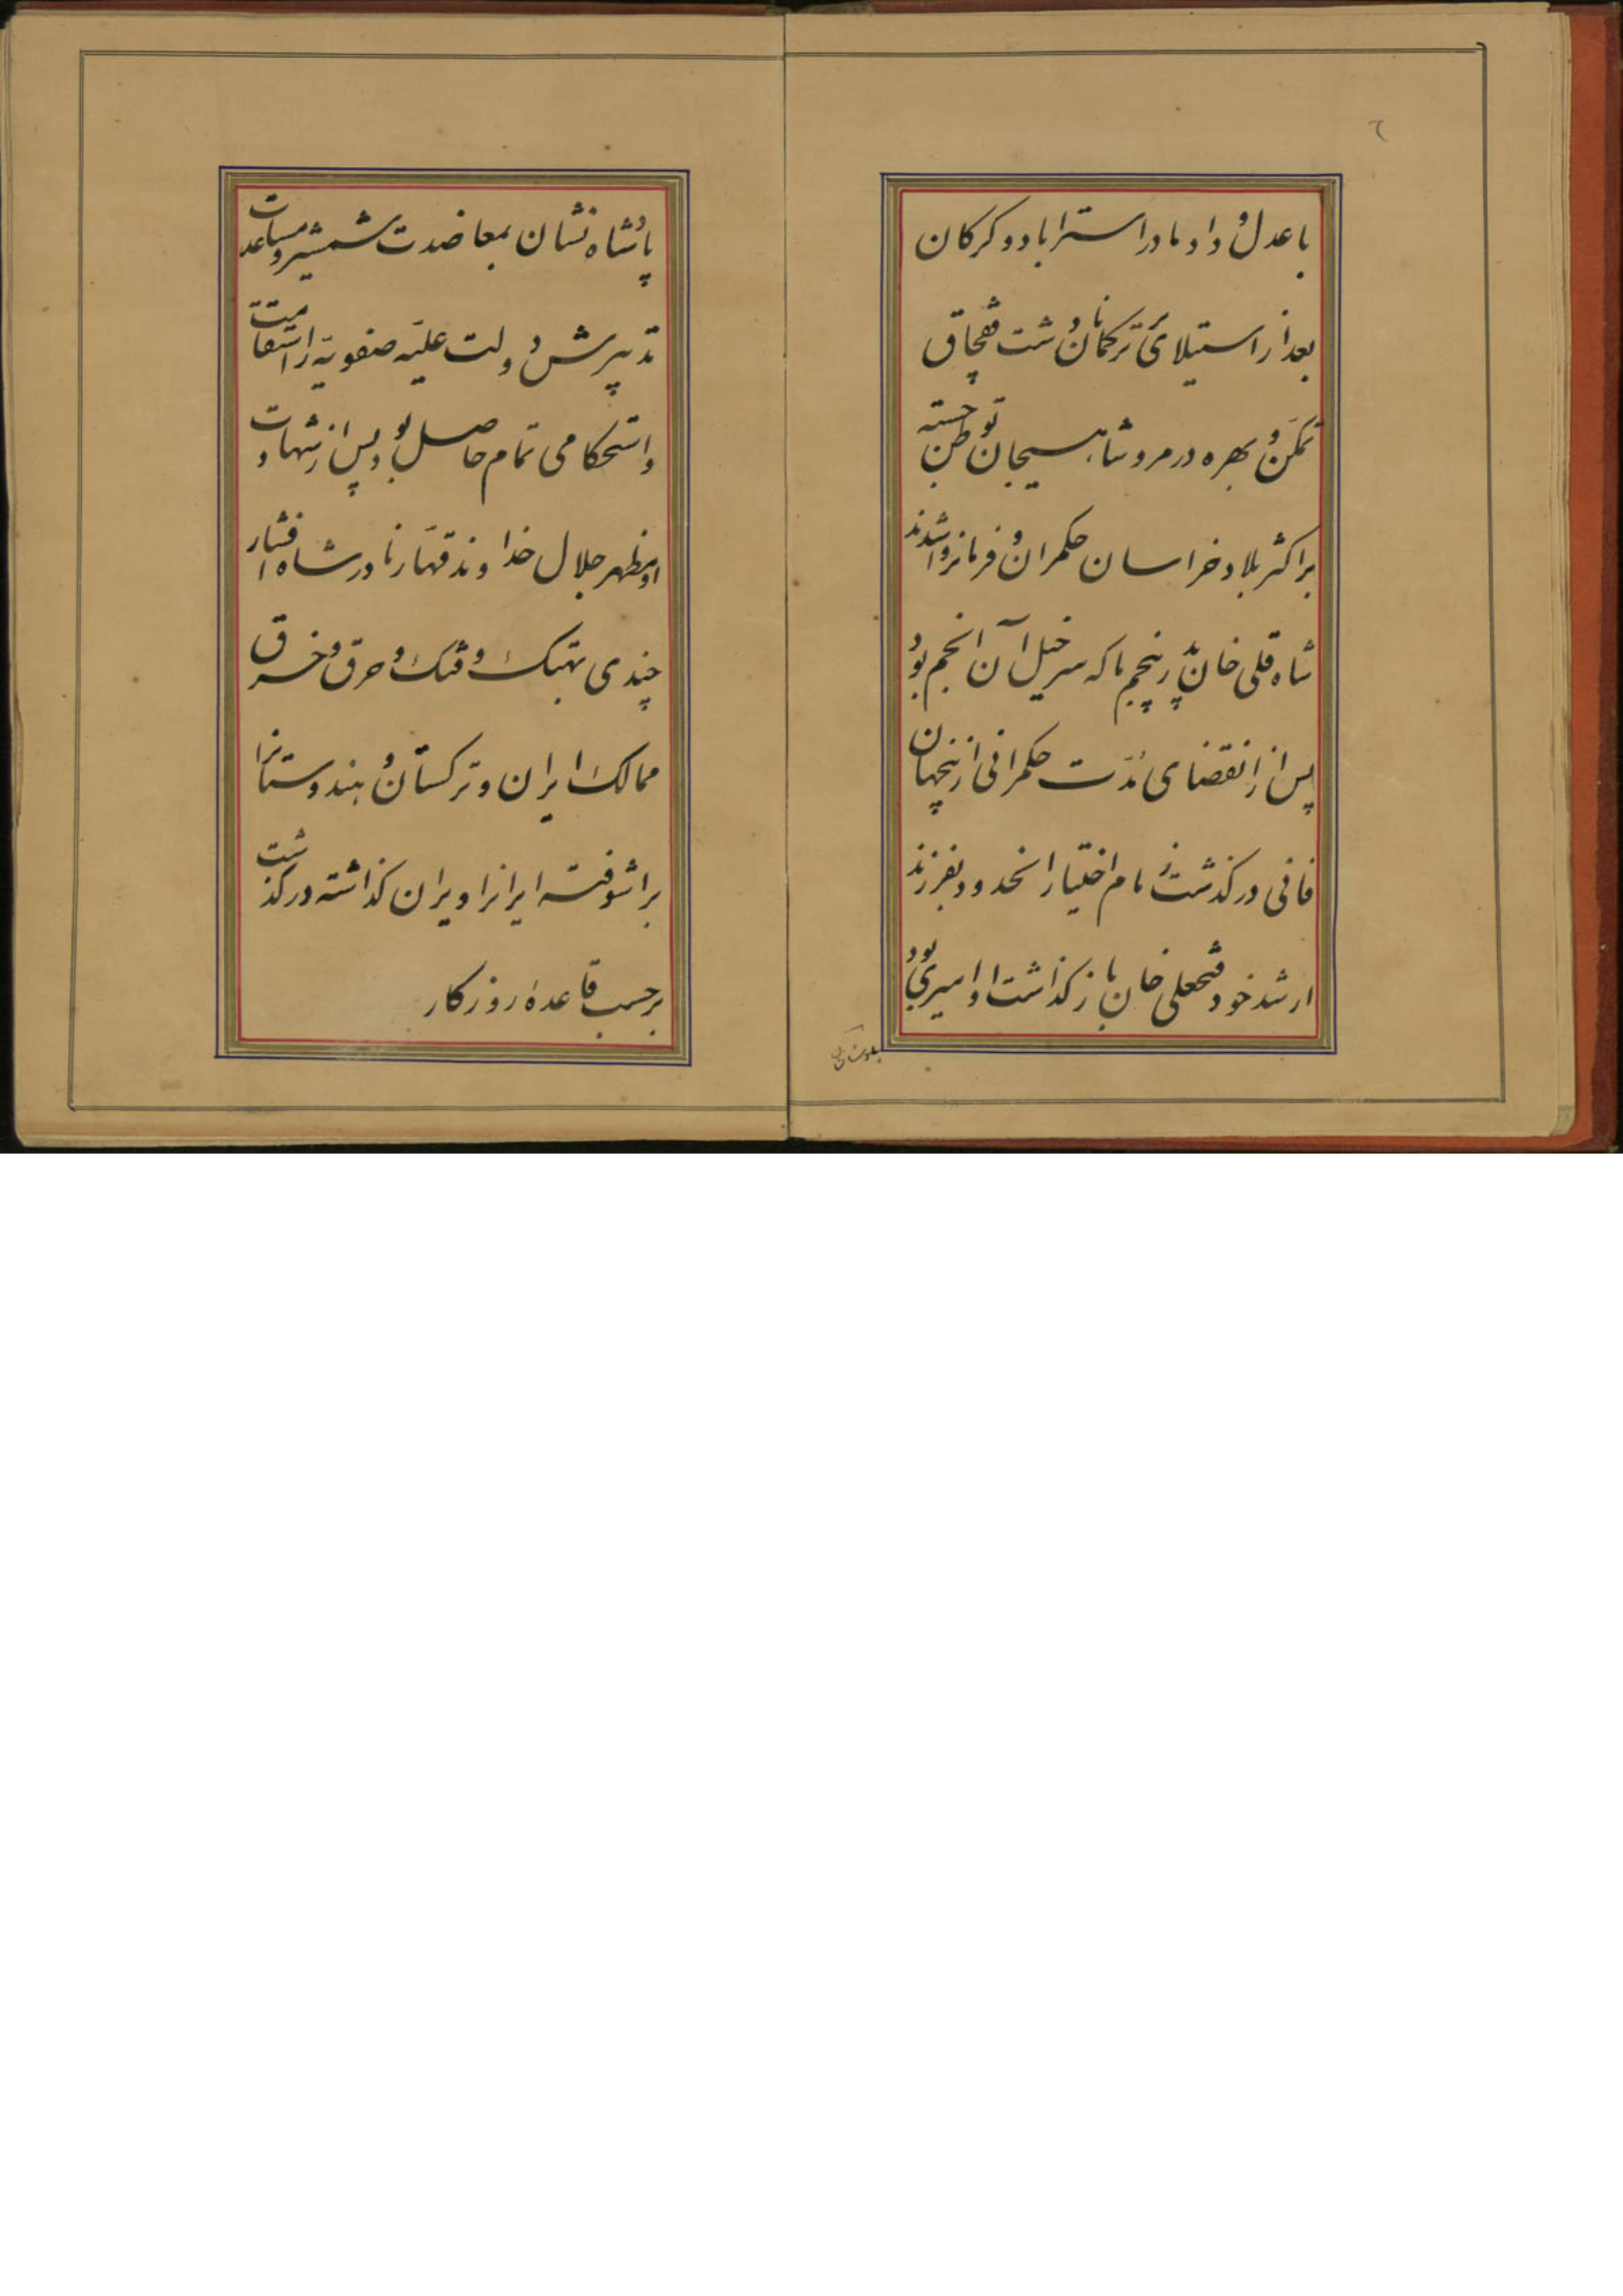 ۲
با عدل و داد ما در استراباد و کرکان
بعد از استیلای ترکمانان دشت قبچاق
تمکن و بهره در مرو شاهیجان توطن جسته
بر اکثر بلاد خراسان حکمران و فرمانروا شدند
شاه قلی خان پدر پنجم ما که سرخیل آن انجم بود
پس از انقضای مدّت حکمرانی ازینجهان
فانی در کذشت زمام اختیار انحدود بفرزند
ارشد خود فتحعلی خان باز کذاشت او امیری بود
پادشاه نشان بمعاضدت شمشیر و مساعدت
تدبیرش دولت علیّه صفویّه را استقامت
و استحکامی تمام حاصل بود پس از شهادت
او مظهر جلال خداوند قهّار نادر شاه افشار
چندی بهتک و فتک و حرق و خرق
ممالک ایران و ترکستان و هندوستانرا
بر اشوفته ایرانرا ویران کذاشته در کذشت
برحسب قاعدهٔ روزکار